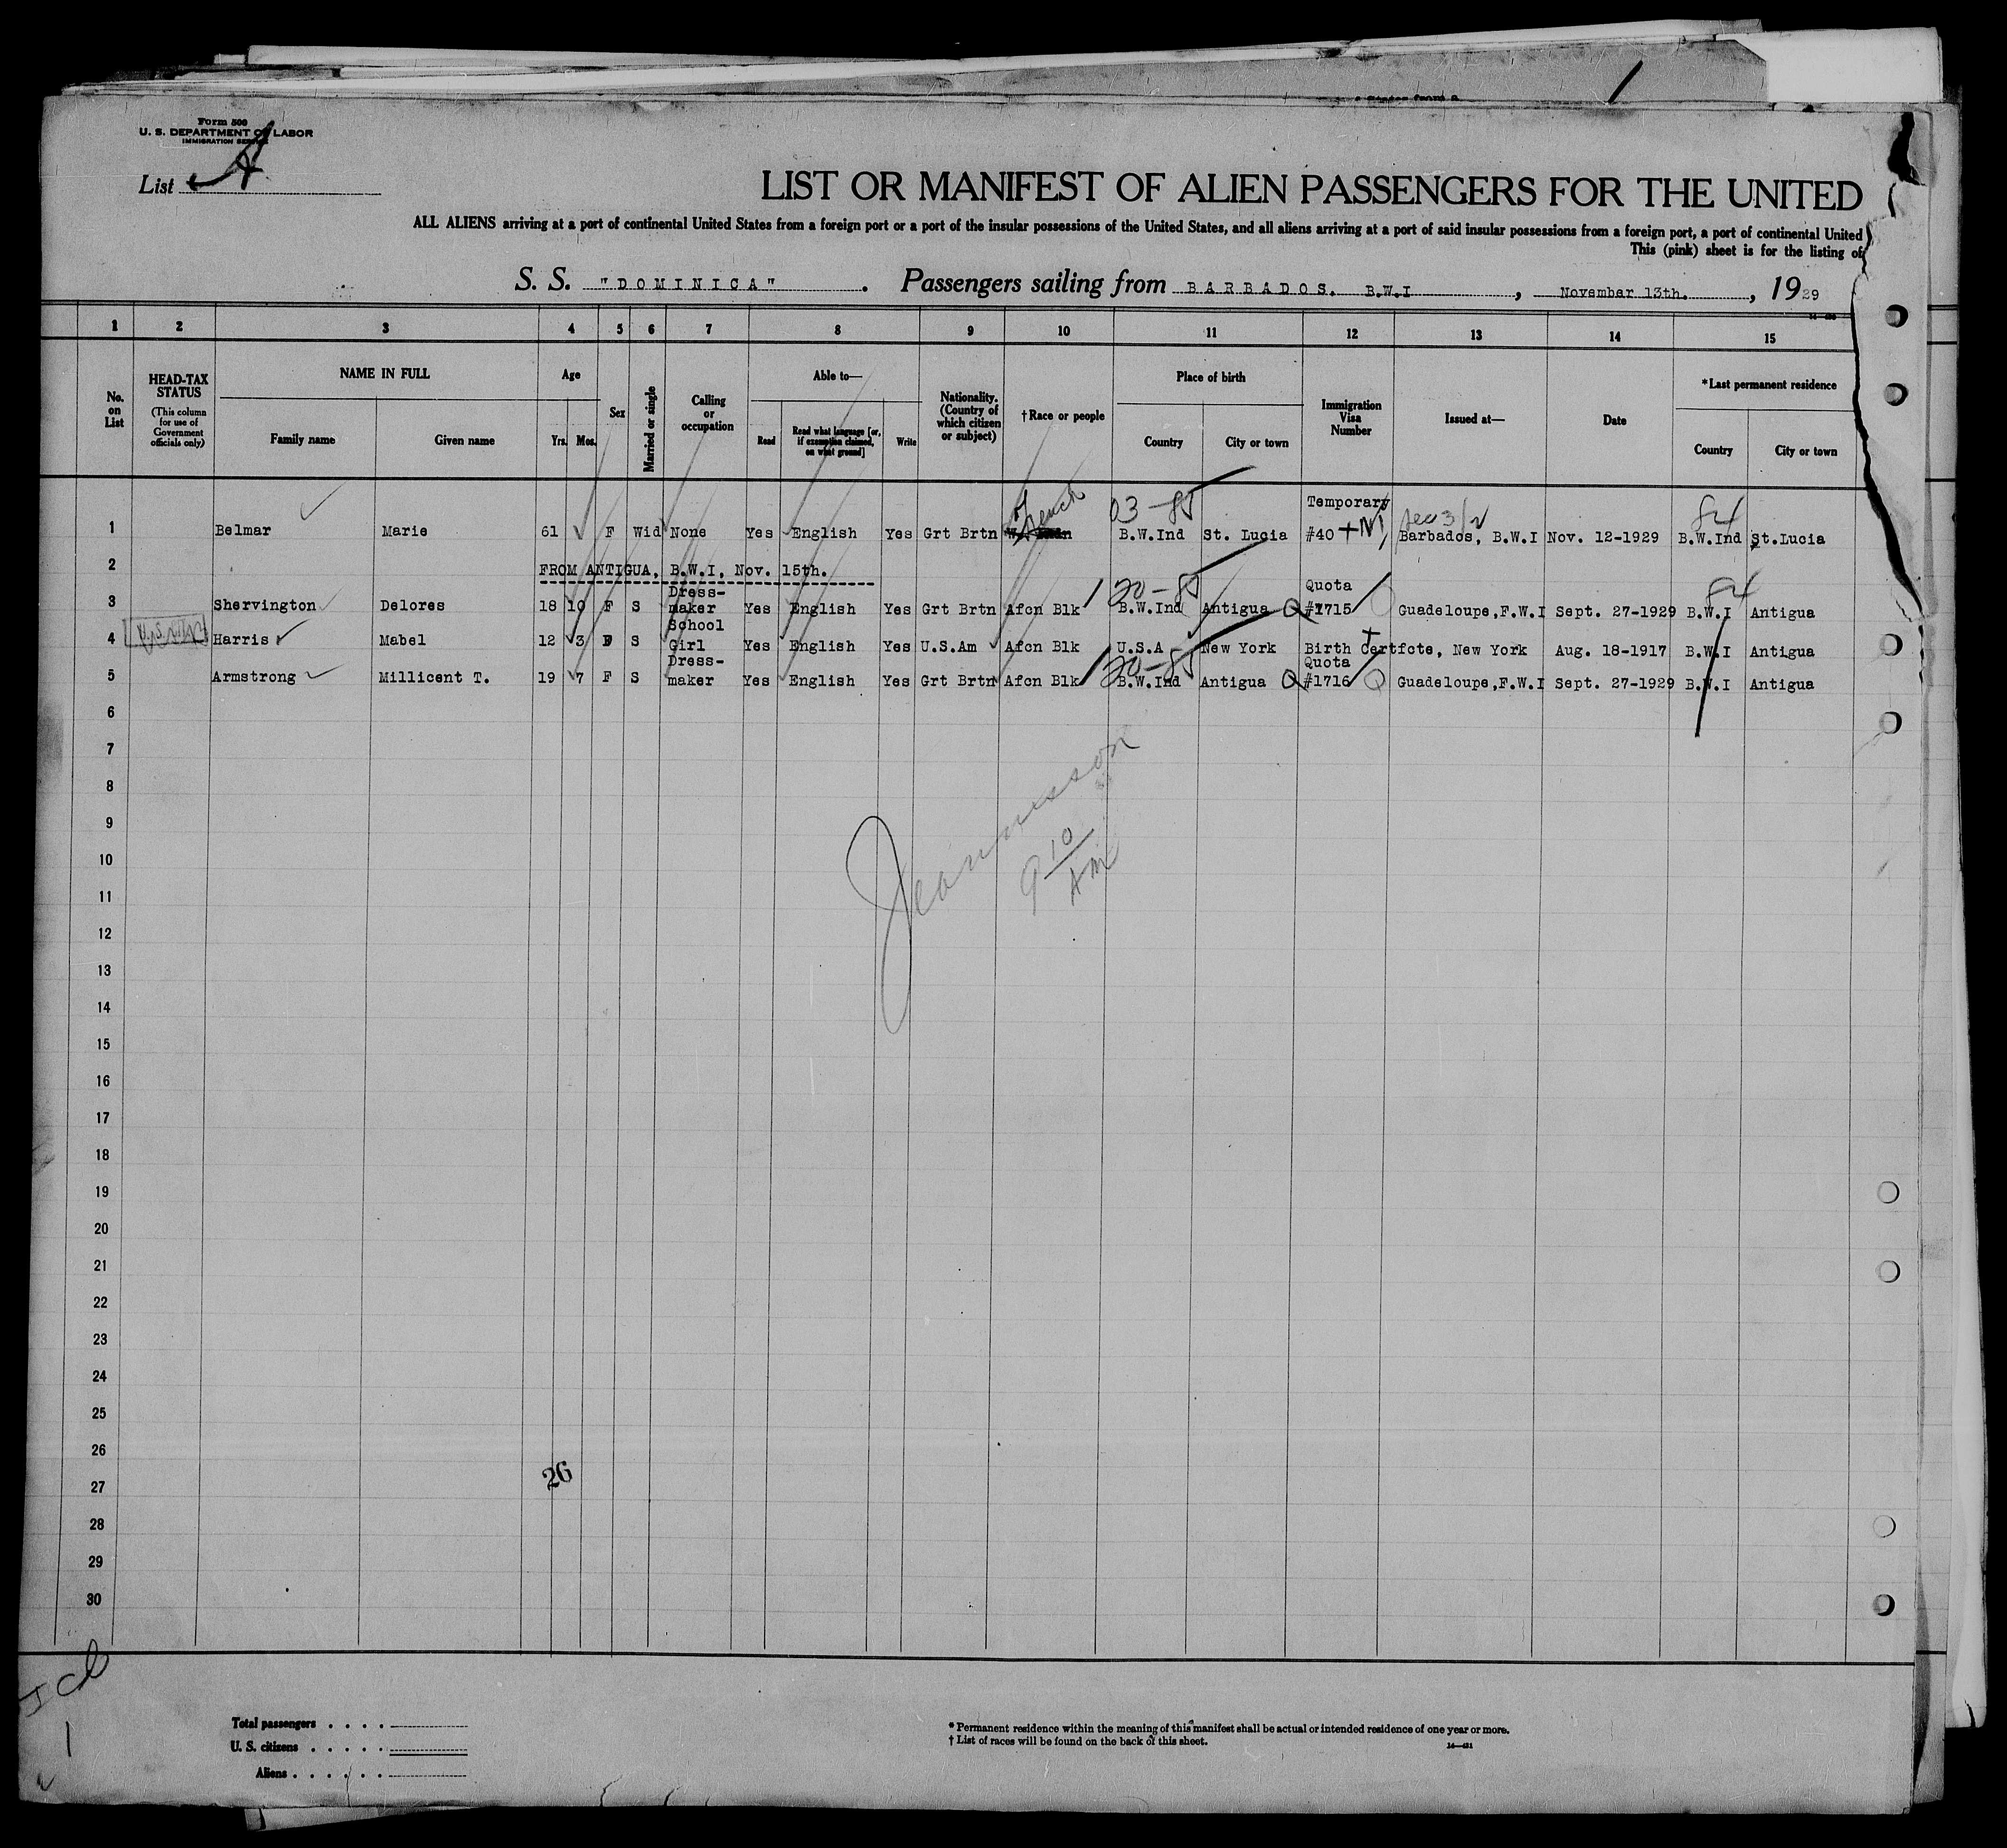 Form 500
U. S. DEPARTMENT OF LABOR
IMMIGRATION SERVICE
List A
LIST OR MANIFEST OF ALIEN PASSENGERS FOR THE UNITED
ALL ALIENS arriving at a port of continental United States from a foreign port or a port of the insular possessions of the United States, and all aliens arriving at a port of said insular possessions from a foreign port, a port of continental United
This (pink) sheet is for the listing of
S. S. "DOMINICA". Passengers sailing from BARBADOS. B.W.I, November 13th., 1929
1 2 3 4 5 6 7 8 9 10 11 12 13 14 15
No. on List
HEAD-TAX STATUS (This column for use of Government officials only)
NAME IN FULL
Family name Given name
Age
Yrs. Mos.
Sex
Married or single
Calling or occupation
Able to—
Read Read what language [or, if exemption claimed, on what ground] Write
Nationality. (Country of which citizen or subject)
†Race or people
Place of birth
Country City or town
Immigration Visa Number
Issued at—
Date
*Last permanent residence
Country City or town
03-85 Temporary 84
1 Belmar Marie 61 F Wid None Yes English Yes Grt Brtn French B.W.Ind St. Lucia #40 Barbados, B.W.I Nov. 12-1929 B.W.Ind St.Lucia
2 FROM ANTIGUA, B.W.I, Nov. 15th.
Dress- 20-85 Quota 84
3 Shervington Delores 18 10 F S maker Yes English Yes Grt Brtn Afcn Blk B.W.Ind Antigua Q #1715 Guadeloupe,F.W.I Sept. 27-1929 B.W.I Antigua
School
4 Harris Mabel 12 3 F S Girl Yes English Yes U.S.Am Afcn Blk U.S.A New York Birth Certfcte, New York Aug. 18-1917 B.W.I Antigua
Dress- 20-85 Quota
5 Armstrong Millicent T. 19 7 F S maker Yes English Yes Grt Brtn Afcn Blk B.W.Ind Antigua Q #1716 Q Guadeloupe,F.W.I Sept. 27-1929 B.W.I Antigua
6
7
8
9
9 10
AM
10
11
12
13
14
15
16
17
18
19
20
21
22
23
24
25
26
26
27
28
29
30
Total passengers . . . .
U. S. citizens . . . . .
Aliens . . . . . .
* Permanent residence within the meaning of this manifest shall be actual or intended residence of one year or more.
† List of races will be found on the back of this sheet.
14—431